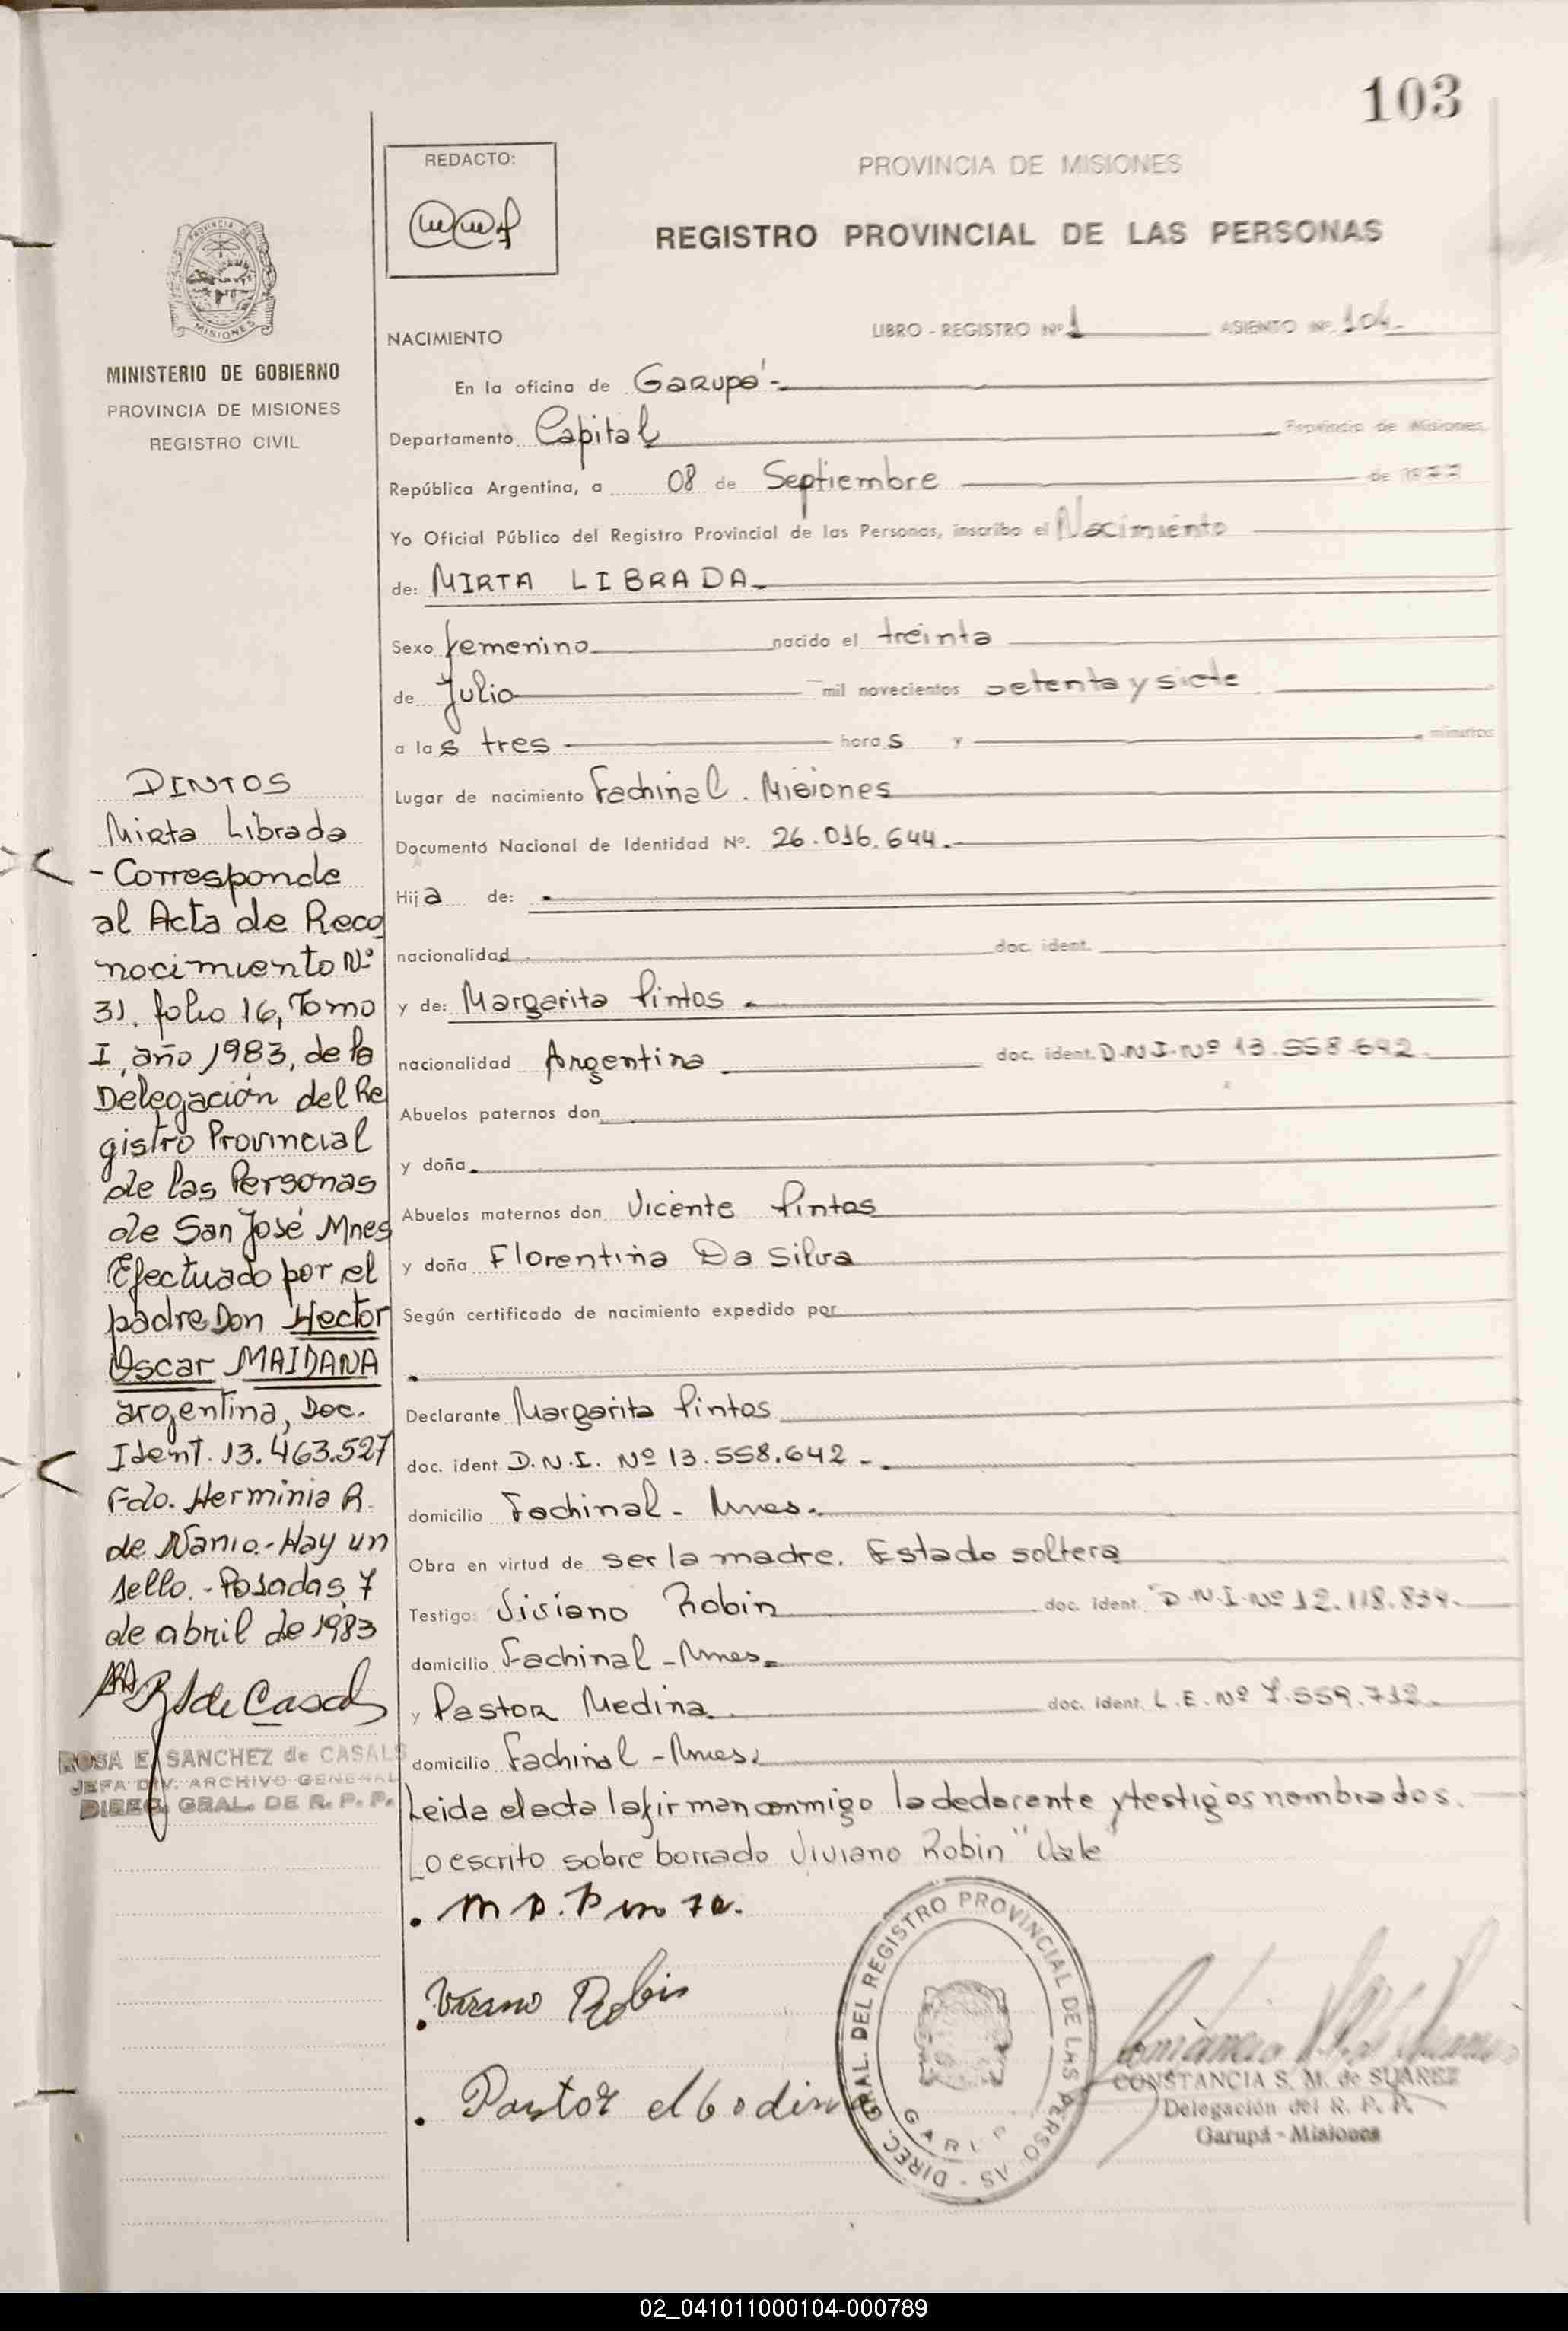 103
REDACTO:
PROVINCIA DE MISIONES
REGISTRO PROVINCIAL DE LAS PERSONAS
MISIONES
MINISTERIO DE GOBIERNO
PROVINCIA DE MISIONES
REGISTRO CIVIL
NACIMIENTO
LIBRO - REGISTRO Nº 1 ASIENTO Nº 104.-
En la oficina de Garupá.-
Departamento Capital Provincia de Misiones,
República Argentina, a 08 de Septiembre de 1977
Yo Oficial Público del Registro Provincial de las Personas, inscribo el Nacimiento
de: MIRTA LIBRADA.-
Sexo femenino nacido el treinta
de Julio mil novecientos setenta y siete
a las tres horas y minutos
Lugar de nacimiento Fachinal. Misiones
Documento Nacional de Identidad Nº. 26.016.644.-
Hija de:
nacionalidad doc. ident.
y de: Margarita Pintos
nacionalidad Argentina doc. ident. D.N.I. Nº 13.558.642
Abuelos paternos don
y doña
Abuelos maternos don Vicente Pintos
y doña Florentina Da Silva
Según certificado de nacimiento expedido por
Declarante Margarita Pintos
doc. ident D.N.I. Nº 13.558.642 -.
domicilio Fachinal - Mnes.
Obra en virtud de ser la madre. Estado soltera
Testigo: Viviano Robin doc. ident. D.N.I. Nº 12.118.834.-
domicilio Fachinal - Mnes.
y Pastor Medina doc. ident. L.E. Nº 7.559.712.-
domicilio Fachinal - Mnes.
Leida el acta la firman conmigo la declarante y testigos nombrados.
Lo escrito sobre borrado Viviano Robin "Vale
PINTOS
Mirta Librada
- Corresponde
al Acta de Reco
nocimiento Nº
31. folio 16, Tomo
I, año 1983, de la
Delegación del Re
gistro Provincial
de las Personas
de San José Mnes
Efectuado por el
padre Don Hector
Oscar MAIDANA
argentina, Doc.
Ident. 13.463.527
Fdo. Herminia R.
de Nanio.- Hay un
sello.- Posadas, 7
de abril de 1983
ROSA E. SANCHEZ de CASALS
JEFA DIV. ARCHIVO GENERAL
DIREC. GRAL. DE R. P. P.
Robin
Pastor
DIREC. GRAL. DEL REGISTRO PROVINCIAL DE LAS PERSO AS -
GARUP
CONSTANCIA S. M. de SUAREZ
Delegación del R. P. P.
Garupá - Misiones
02_041011000104-000789